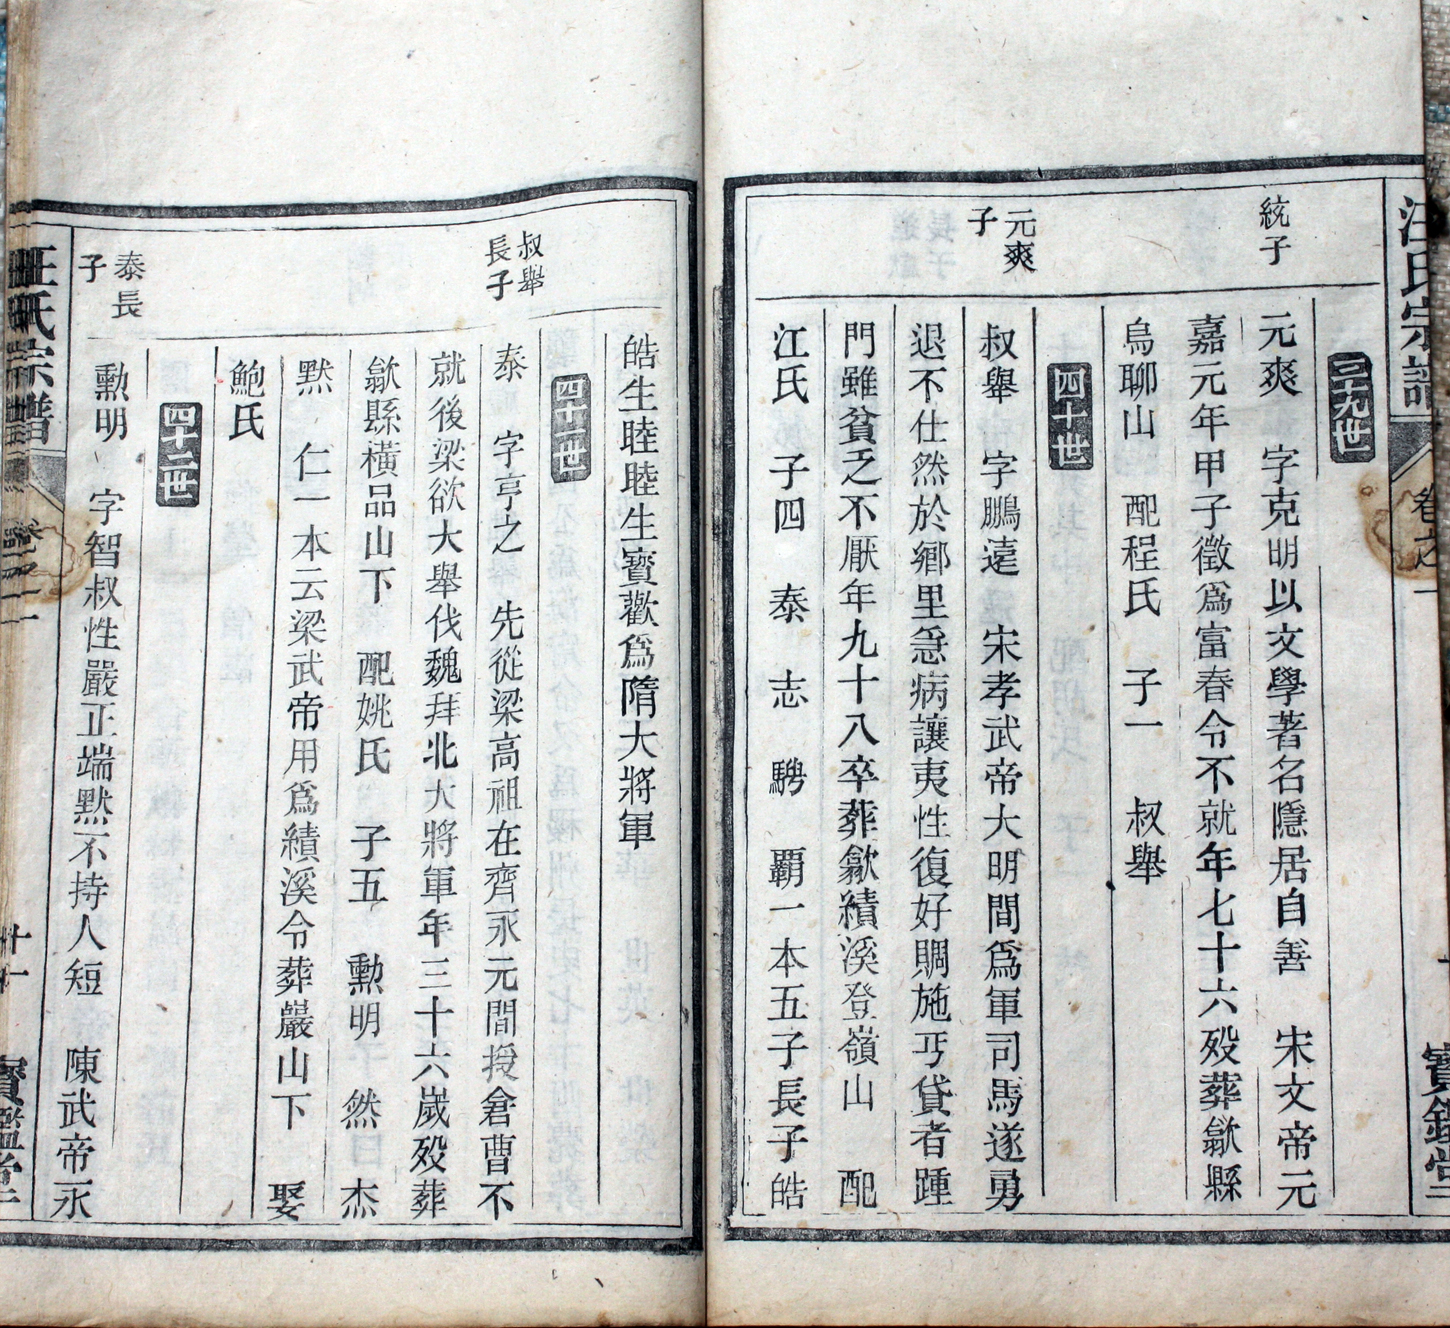 汪氏宗譜
卷之一
三十九世
統子
元爽　字克明以文學著名隱居自善　宋文帝元
嘉元年甲子徵爲富春令不就年七十六殁葬歙縣
烏聊山　配程氏　子一　叔舉
四十世
元爽
子
叔舉　字鵬遠　宋孝武帝大明間爲軍司馬遂勇
退不仕然於鄉里急病讓夷性復好賙施丐貸者踵
門雖貧乏不厭年九十八卒葬歙績溪登嶺山　配
江氏　子四　泰　志　騁　覇一本五子長子皓
皓生睦睦生寶歡爲隋大將軍
四十一世
叔舉
長子
泰　字亨之　先從梁高祖在齊永元間授倉曹不
就後梁欲大舉伐魏拜北大將軍年三十六歲殁葬
歙縣橫品山下　配姚氏　子五　勳明　然　杰
黙　仁一本云梁武帝用爲績溪令葬嚴山下　娶
鮑氏
四十二世
泰長
子
勳明　字智叔性嚴正端黙不持人短　陳武帝永
汪氏宗譜
廿一